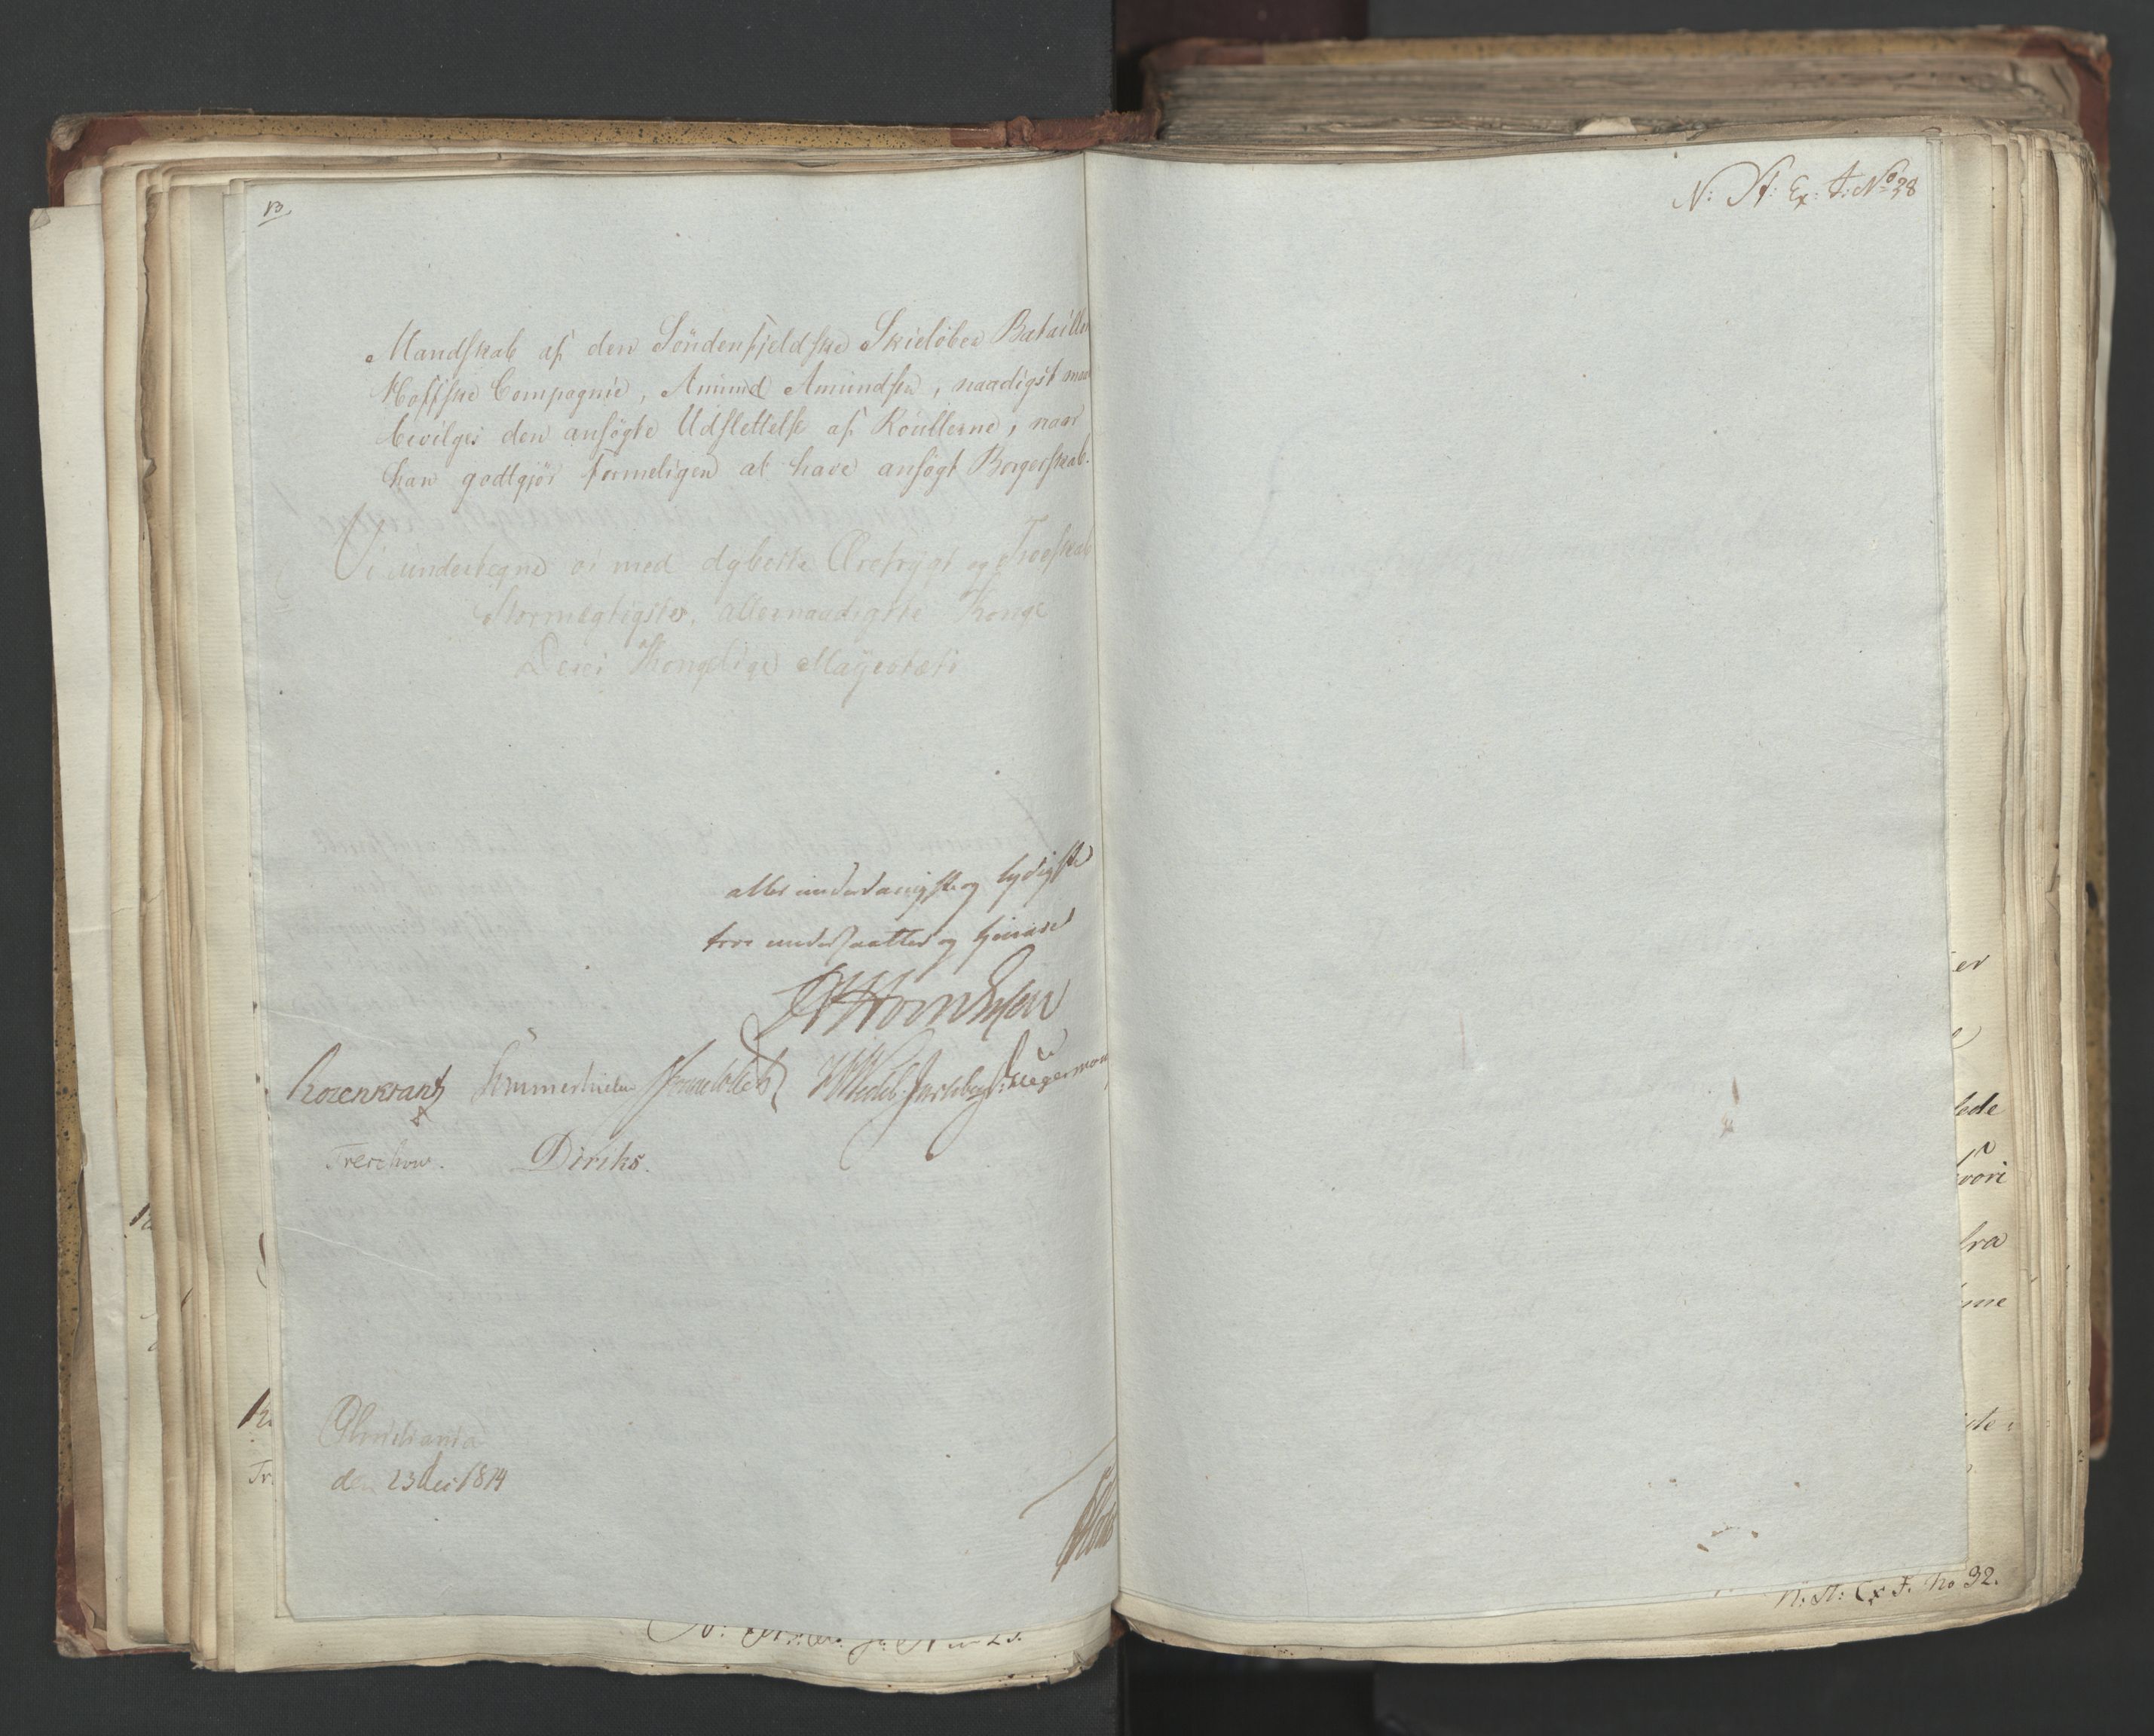 13
Mandskab af den Söndenfjeldske Skieløber Bataillo
Hoffske Compagnie, Amund Amundsen, naadigst maa
bevilges den ansögte Udslettelse af Roullerne, naar
han godtgjör formeligen at have ansögt Borgerskab.
Vi undertegne os med dybeste Ærefrygt og Troeskab
Stormægtigste, allernaadigste Konge
Deres Kongelige Mayestæts
allerunderdanigste og lydigste
troe undersaatter og tjenere
Rosenkrantz Sommerhielm Wedel-Jarlsberg Hegermann
Treschow. Diriks.
Christiania
den 23 dec 1814
N: St: Ex: f: No 28
er
lede
fra
N: St: Ex F. No 32.